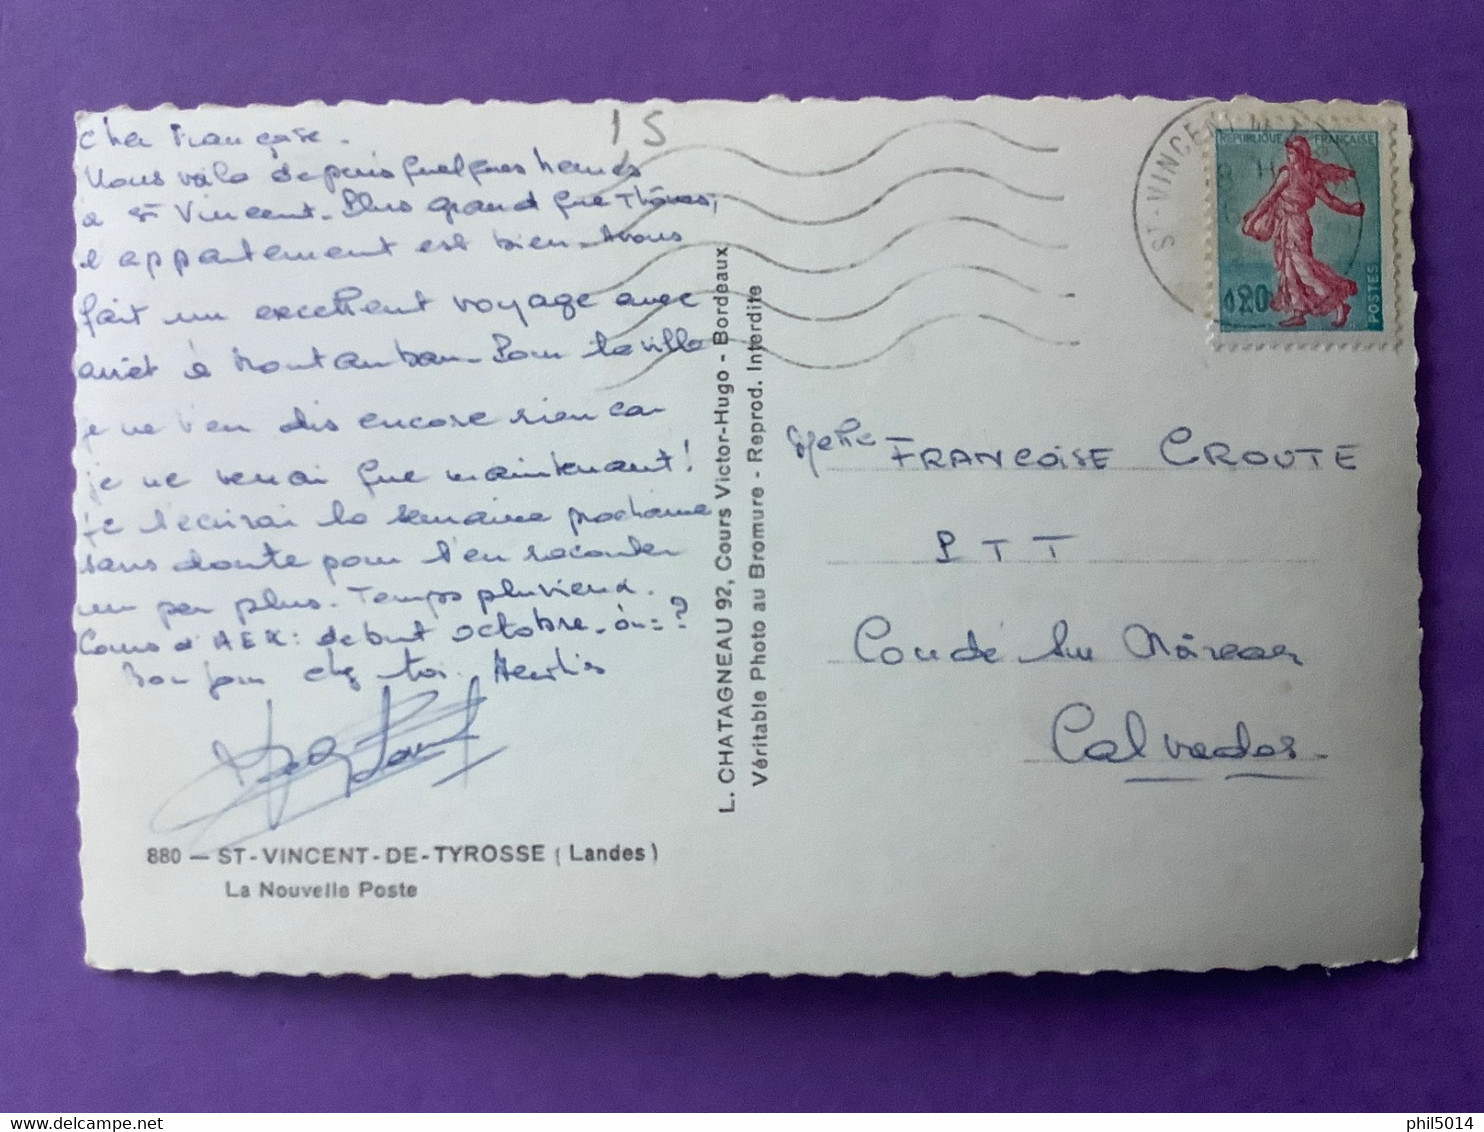 Cher Françoise.
Nous voilà depuis quelques heures
à St Vincent. Plus grand que Thônes,
l'appartement est bien. Avons
fait un excellent voyage avec
arrêt à Montauban. Pour la ville
je ne t'en dis encore rien car
je ne venai que maintenant!
Je t'écrirai la semaine prochaine
sans doute pour t'en raconter
un peu plus. Temps pluvieux.
Cours d'AEX: début octobre. où = ?
Bonjour chez toi.
15
880 — ST-VINCENT-DE-TYROSSE (Landes)
La Nouvelle Poste
L. CHATAGNEAU 92, Cours Victor-Hugo - Bordeaux
Véritable Photo au Bromure - Reprod. Interdite
ST-VINCENT
RÉPUBLIQUE FRANÇAISE
0,20
POSTES
Melle FRANÇOISE CROUTE
PTT
Condé sur Noireau
Calvados
phil5014